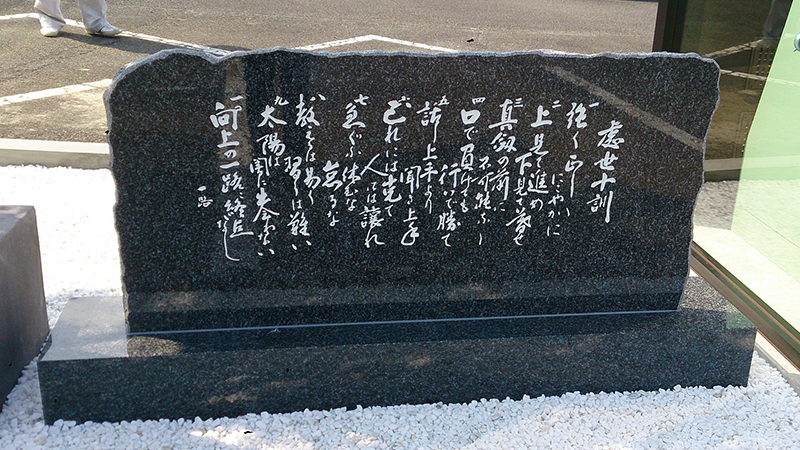 處世十訓
一 強く正しく にこやかに
二 上見て進め 下見て暮せ
三 真剣の前に 不可能なし
四 口で負けても 行で勝て
五 話し上手より 聞き上手
六 己れには克て 人には譲れ
七 急ぐも休むな 怠るな
八 教えは易く 習しは難い
九 太陽は 闇に会わない
十 向上の一路、終点なし
一路